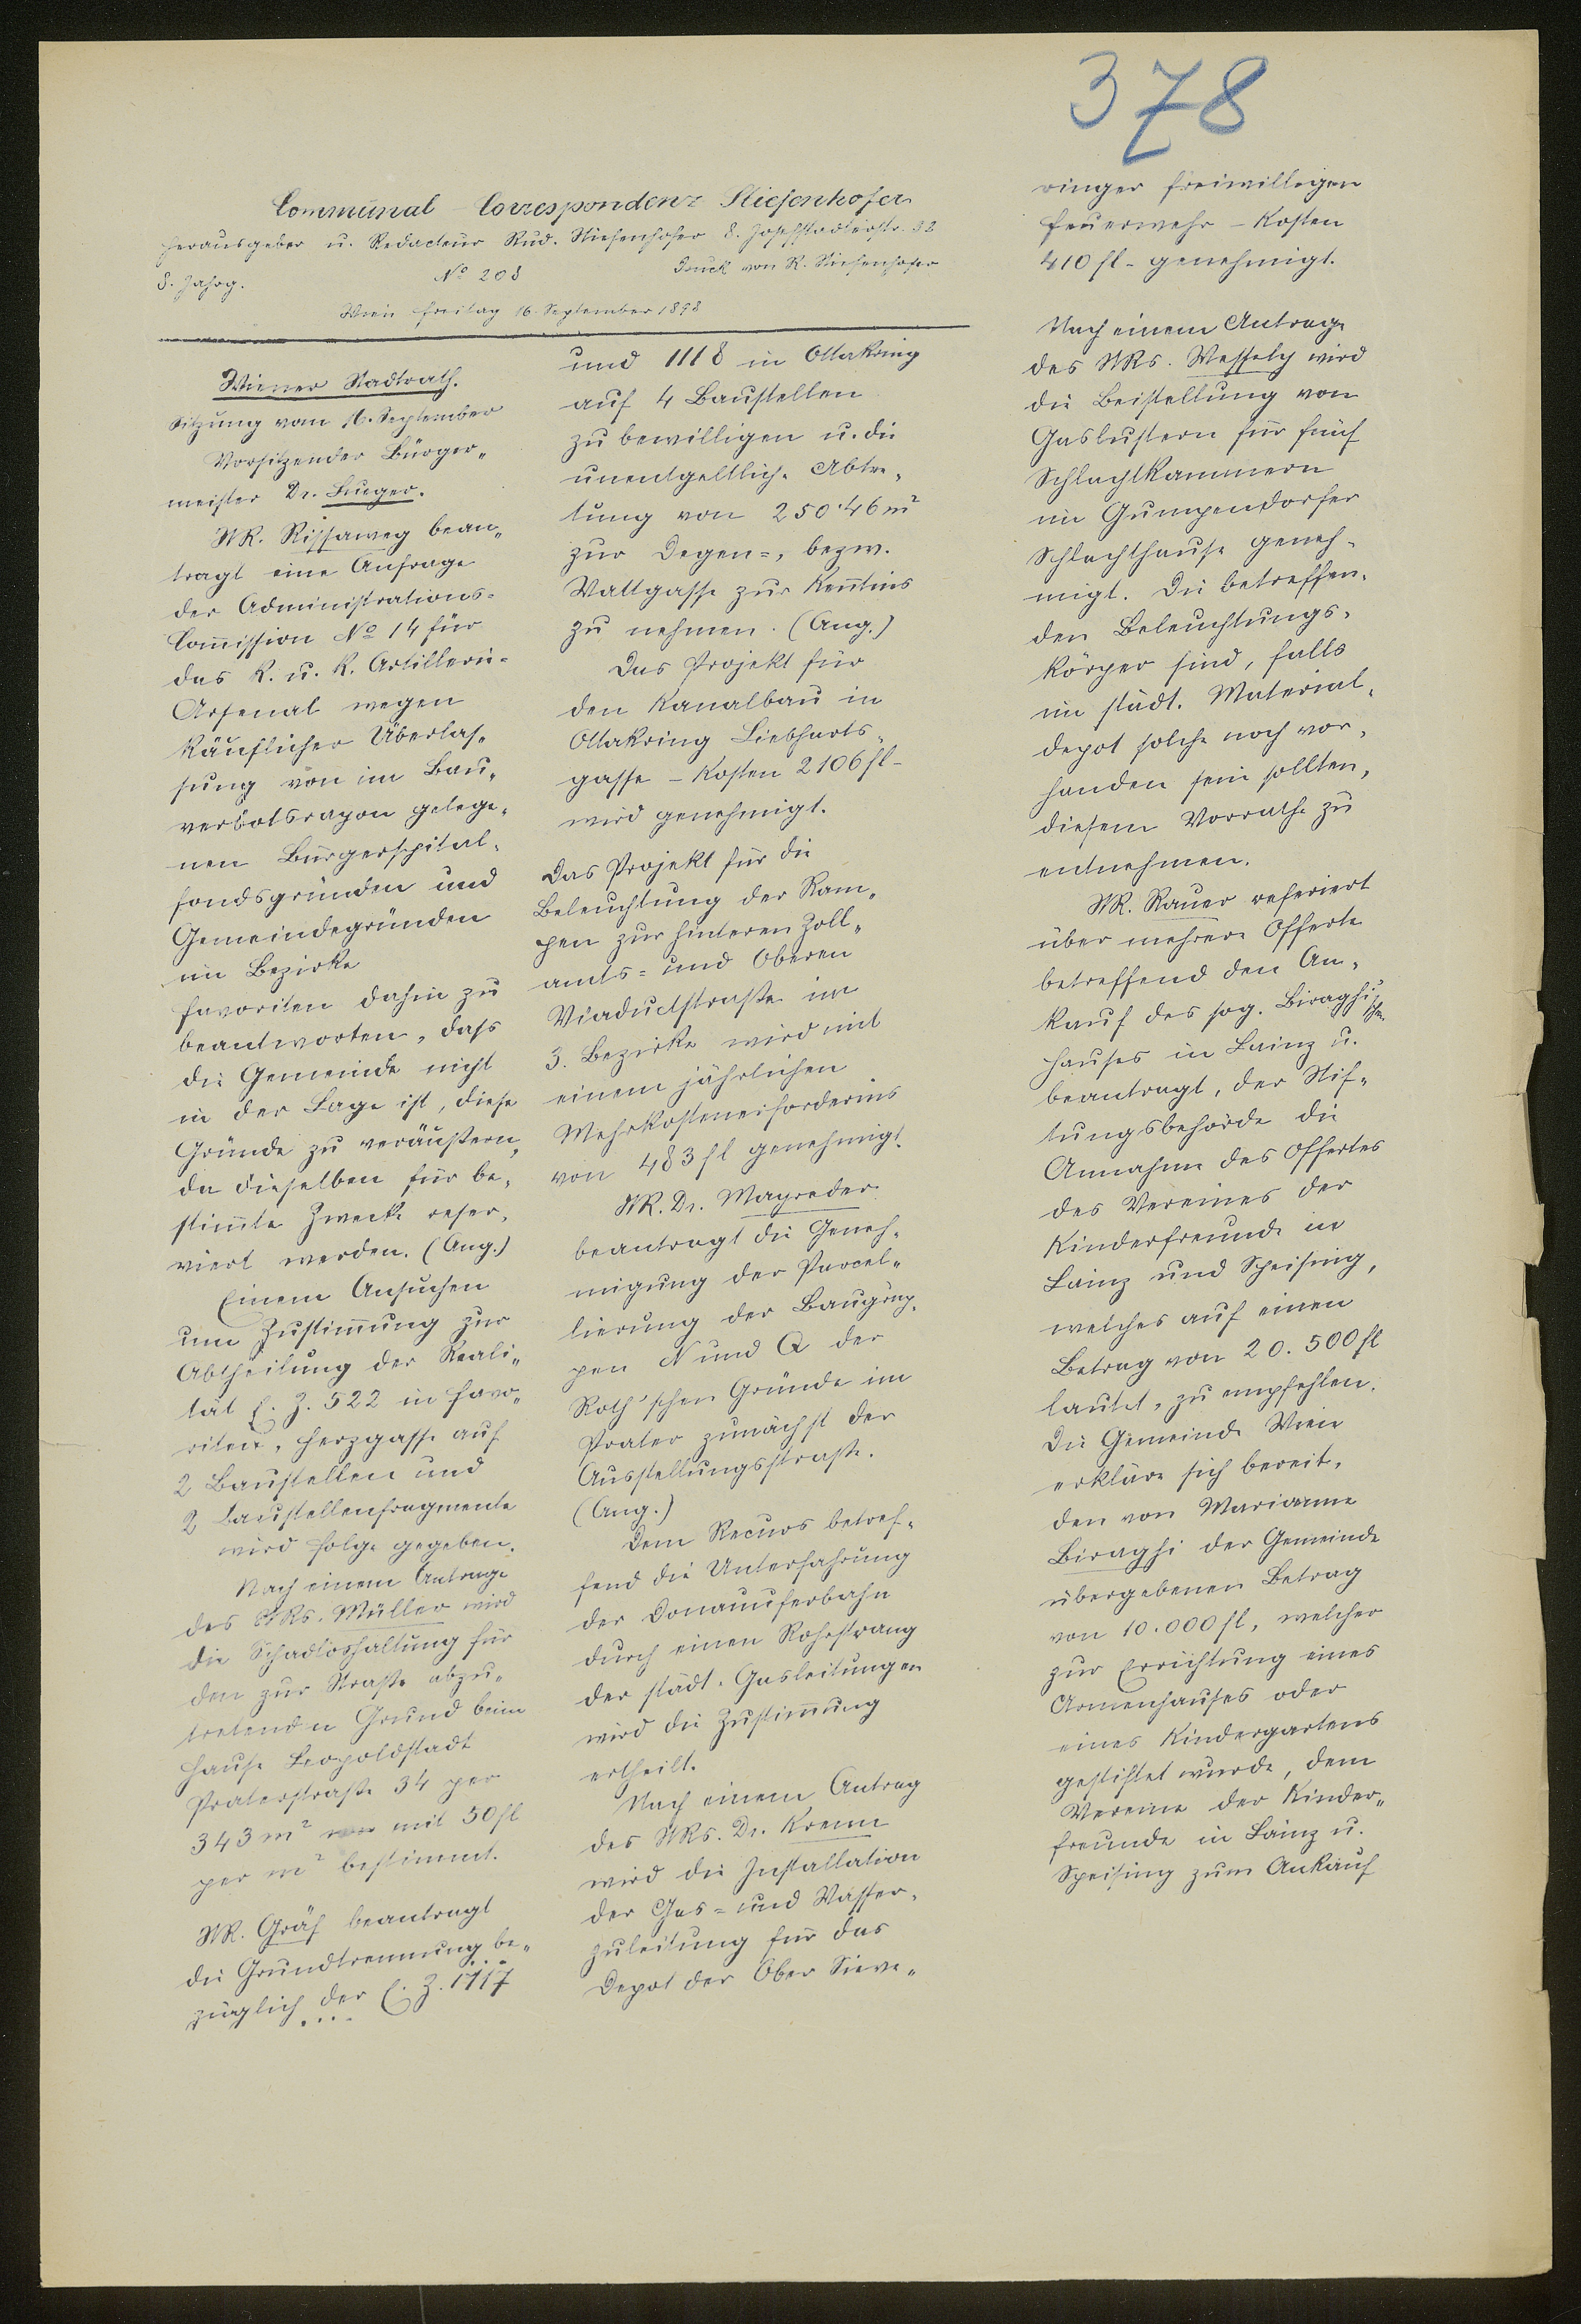 378
Communal-Correspondenz Stiefenhofer
Herausgeber u. Redacteur Rud. Stiefenhofer 8. Josefstädterstr. 32
8. Jahrg. No 208 Druck von R. Stiefenhofer
Wien Freitag 16. September 1898
Wiener Stadtrath.
Sitzung vom 16. September
Vorsitzender Bürger„
meister Dr. Lueger.
StR. Rissaweg bean„
tragt eine Anfrage
der Administrations=
Com̄ission No 14 für
das k. u. k. Artillerie=
Arsenal wegen
käuflicher Überlas„
sung von im Bau„
verbotsrayon gelege„
nen Bürgerspital„
fondsgründen und
Gemeindegründen
im Bezirke
Favoriten dahin zu
beantworten, dass
die Gemeinde nicht
in der Lage ist, diese
Gründe zu veräußern,
da dieselben für be„
stim̄te Zwecke reser„
viert werden. (Ang.)
Einem Ansuchen
um Zustim̄ung zur
Abtheilung der Reali„
tät E. Z. 522 in Favo„
riten, Herzgasse auf
2 Baustellen und
2 Baustellenfragmente
wird Folge gegeben.
Nach einem Antrage
des StRs. Müller wird
die Schadloshaltung für
den zur Straße abzu„
tretenden Grund beim
Hause Leopoldstadt
Praterstraße 34 per
343 m² mit 50 fl
per m² bestimmt.
StR. Gräf beantragt
die Grundtrennung be„
züglich der E. Z. 1117
und 1118 in Ottakring
auf 4 Baustellen
zu bewilligen u. die
unentgeltliche Abtre„
tung von 250·46 m²
zur Degen=, bezw.
Wattgasse zur Ken̄tnis
zu nehmen. (Ang.)
Das Projekt für
den Kanalbau in
Ottakring Liebharts„
gasse – Kosten 2106 fl –
wird genehmigt.
Das Projekt für die
Beleuchtung der Ram„
pen zur hinteren Zoll„
amts= und Oberen
Viaductstraße im
3. Bezirke wird mit
einem jährlichen
Mehrkostenerfordernis
von 483 fl genehmigt.
StR. Dr. Mayreder
beantragt die Geneh„
migung der Parcel„
lierung der Baugrup„
pen N und Q der
Roth'schen Gründe im
Prater zunächst der
Ausstellungsstraße.
(Ang.)
Dem Recurs betref„
fend die Unterfahrung
der Donauuferbahn
durch einen Rohrstrang
der städt. Gasleitungen
wird die Zustim̄ung
ertheilt.
Nach einem Antrag
des StRs. Dr. Krenn
wird die Installation
der Gas= und Wasser„
zuleitung für das
Depot der Ober Sieve„
ringer freiwilligen
Feuerwehr – Kosten
410 fl – genehmigt.
Nach einem Antrage
des StRs. Wessely wird
die Beistellung von
Gaslustern für fünf
Schlachtkammern
im Gumpendorfer
Schlachthause geneh„
migt. Die betreffen„
den Beleuchtungs„
körper sind, falls
im städt. Material„
depot solche noch vor„
handen sein sollten,
diesem Vorrathe zu
entnehmen.
StR. Rauer referiert
über mehrere Offerte
betreffend den An„
kauf des sog. Biraghi'schen
Hauses in Lainz u.
beantragt, der Stif„
tungsbehörde die
Annahme des Offertes
des Vereines der
Kinderfreunde in
Lainz und Speising,
welches auf einen
Betrag von 20.500 fl
lautet, zu empfehlen.
Die Gemeinde Wien
erkläre sich bereit,
den von Marianne
Biraghi der Gemeinde
übergebenen Betrag
von 10.000 fl, welcher
zur Errichtung eines
Armenhauses oder
eines Kindergartens
gestiftet wurde, dem
Vereine der Kinder„
freunde in Lainz u.
Speising zum Ankauf